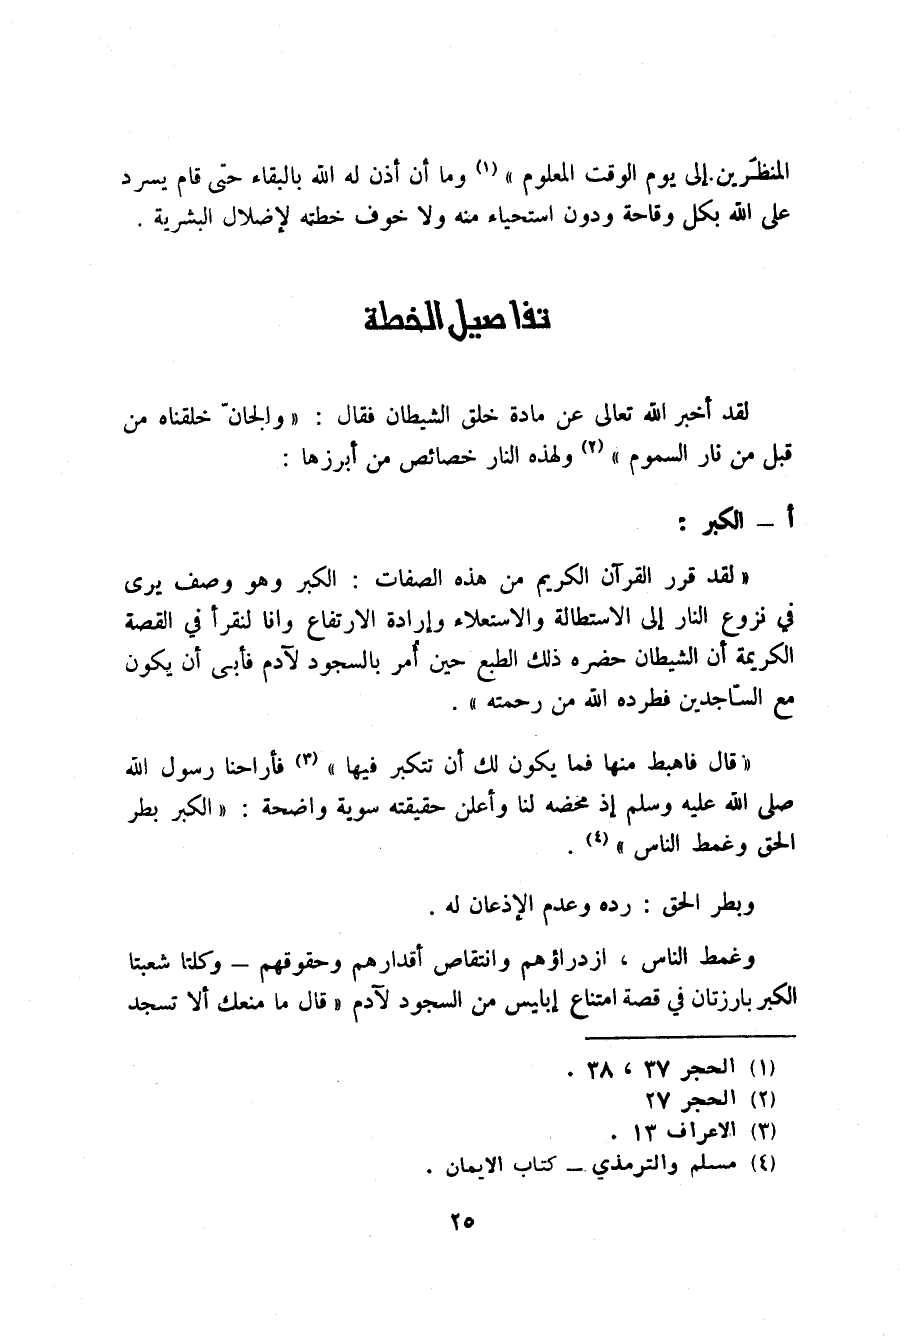 المنظَرين.إلى يوم الوقت المعلوم » (١) وما أن أذن له الله بالبقاء حتى قام يسرد
على الله بكل وقاحة ودون استحياء منه ولا خوف خطته لإضلال البشرية .
تفاصيل الخطة
لقد أخبر الله تعالى عن مادة خلق الشيطان فقال : « والجانّ خلقناه من
قبل من نار السموم » (٢) ولهذه النار خصائص من أبرزها :
أ – الكبر :
« لقد قرر القرآن الكريم من هذه الصفات : الكبر وهو وصف يرى
في نزوع النار إلى الاستطالة والاستعلاء وإرادة الارتفاع وانا لنقرأ في القصة
الكريمة أن الشيطان حضره ذلك الطبع حين أُمر بالسجود لآدم فأبى أن يكون
مع السّاجدين فطرده الله من رحمته » .
« قال فاهبط منها فما يكون لك أن تتكبر فيها » (٣) فأراحنا رسول الله
صلى الله عليه وسلم إذ محضه لنا وأعلن حقيقته سوية واضحة : « الكبر بطر
الحق وغمط الناس » (٤) .
وبطر الحق : رده وعدم الإذعان له .
وغمط الناس ، ازدراؤهم وانتقاص أقدارهم وحقوقهم – وكلتا شعبتا
الكبر بارزتان في قصة امتناع إبليس من السجود لآدم « قال ما منعك ألا تسجد
(١) الحجر ٣٧ ، ٣٨ .
(٢) الحجر ٢٧
(٣) الاعراف ١٣ .
(٤) مسلم والترمذي – كتاب الايمان .
٢٥